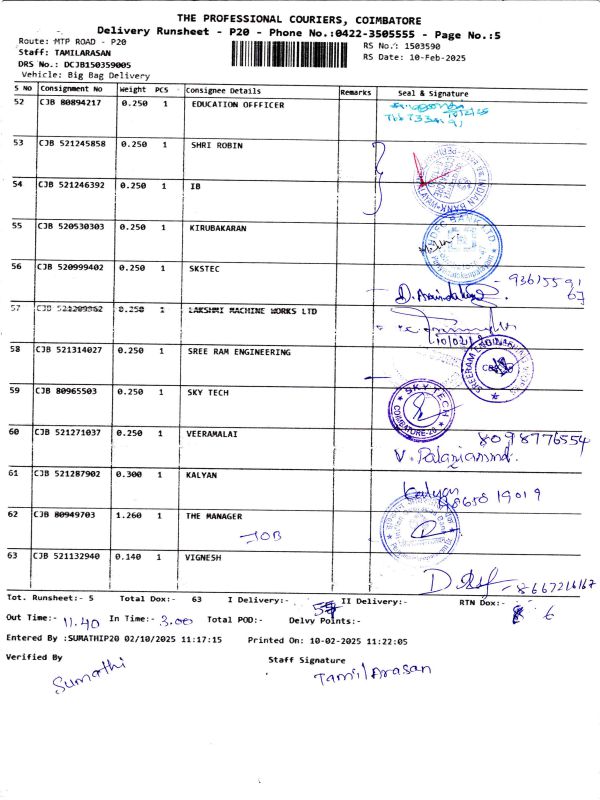 THE PROFESSIONAL COURIERS, COIMBATORE
Delivery Runsheet - P20 - Phone No.:0422-3505555 - Page No.:5
Route: MTP ROAD - P20
RS No.: 1503590
Staff: TAMILARASAN
RS Date: 10-Feb-2025
DRS No.: DCJB150359005
Vehicle: Big Bag Delivery
S NO Consignment No Weight PCS Consignee Details Remarks Seal & Signature
52 CJB 80894217 0.250 1 EDUCATION OFFFICER
53 CJB 521245858 0.250 1 SHRI ROBIN
54 CJB 521246392 0.250 1 IB
INDIAN BANK
55 CJB 520530303 0.250 1 KIRUBAKARAN
BANK LTD
56 CJB 520999402 0.250 1 SKSTEC
57 CJB 521209962 0.250 1 LAKSHMI MACHINE WORKS LTD
58 CJB 521314027 0.250 1 SREE RAM ENGINEERING
59 CJB 80965503 0.250 1 SKY TECH
SKY TECH
COIMBATORE
60 CJB 521271037 0.250 1 VEERAMALAI 8098776554
61 CJB 521287902 0.300 1 KALYAN Kalyan
62 CJB 80949703 1.260 1 THE MANAGER
IOB
63 CJB 521132940 0.140 1 VIGNESH 8667216167
Tot. Runsheet:- 5 Total Dox:- 63 I Delivery:- II Delivery:- RTN Dox:- 6
Out Time:- 11.40 In Time:- 3.00 Total POD:- Delvy Points:-
Entered By :SUMATHIP20 02/10/2025 11:17:15 Printed On: 10-02-2025 11:22:05
Verified By Staff Signature
Sumathi TamilArasan